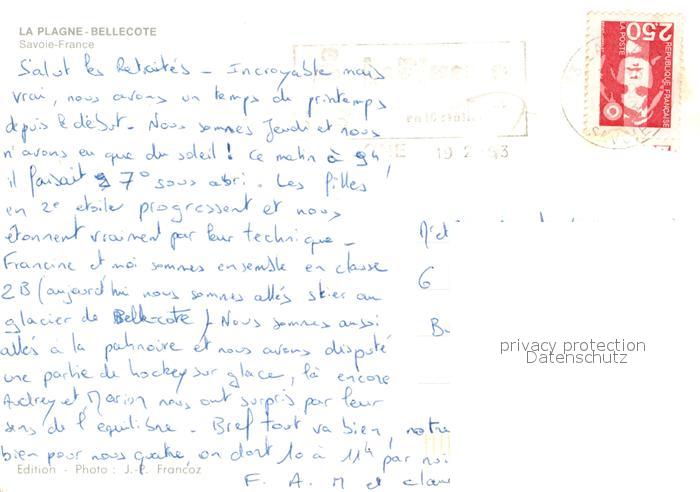 LA PLAGNE - BELLECOTE
Savoie-France
Salut les Retraités - Incroyable mais
vrai, nous avons un temps de printemps
depuis le début. Nous sommes Jeudi et nous
n'avons eu que du soleil ! Ce matin à 9h,
il faisait 7° sous abri. Les filles
en 2e etoile progressent et nous
étonnent vraiment par leur technique -
Francine et moi sommes ensemble en classe
2B (aujourd'hui nous sommes allés skier au
glacier de Bellecote). Nous sommes aussi
allés à la patinoire et nous avons disputé
une partie de hockey sur glace, là encore
Audrey et Marion nous ont surpris par leur
sens de l'equilibre. Bref tout va bien, notre
bien pour nous quatre, on dort 10 à 11h par nui
F. A. M et
Edition - Photo : J.-P. Francoz
2,50
LA POSTE
REPUBLIQUE FRANÇAISE
19 2
6
privacy protection
Datenschutz